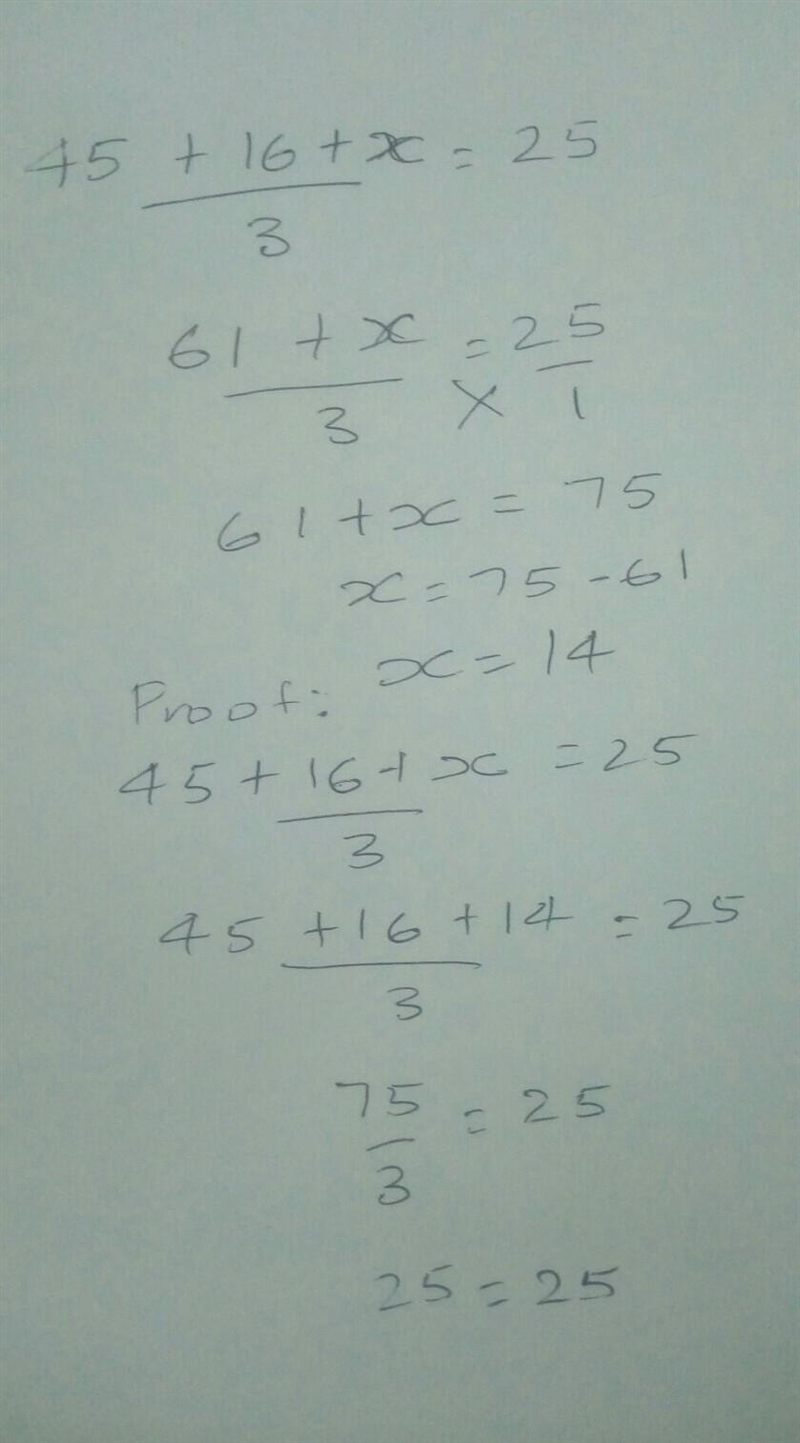 45 + 16 + x = 25
3
61 + x = 25
3 X 1
61 + x = 75
x = 75 - 61
x = 14
Proof:
45 + 16 + x = 25
3
45 + 16 + 14 = 25
3
75 = 25
3
25 = 25